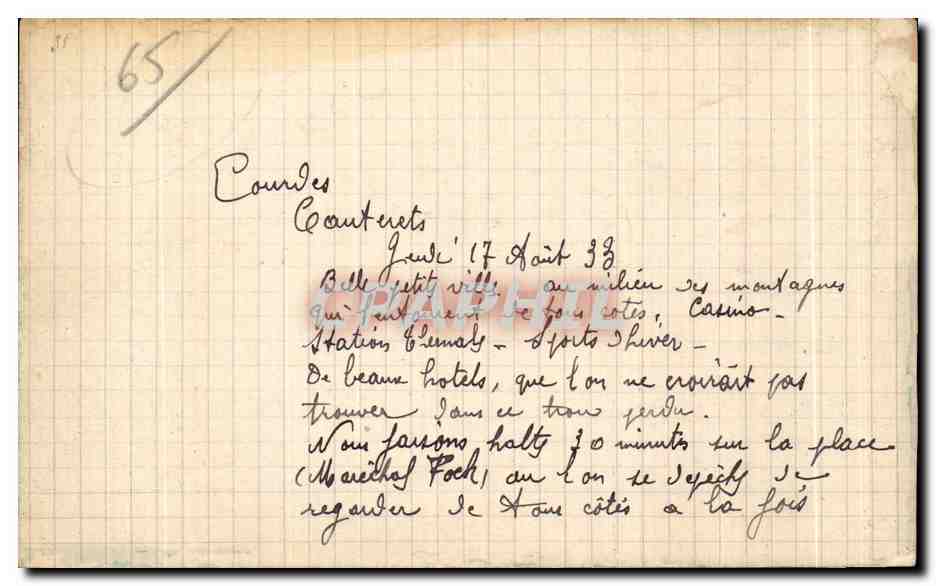 35
65/
Lourdes
Cauterets
Jeudi 17 Août 33
Belle petite ville au milieu des montagnes
qui l'entourent de tous cotés, Casino -
Station Termale - Sports d'hiver -
De beaux hotels, que l'on ne croirait pas
trouver dans ce trou perdu.
Nous faisons halte 30 minutes sur la place
(Maréchal Foch) ou l'on se dépêche de
regarder de tous côtés a la fois
CPAPHIL